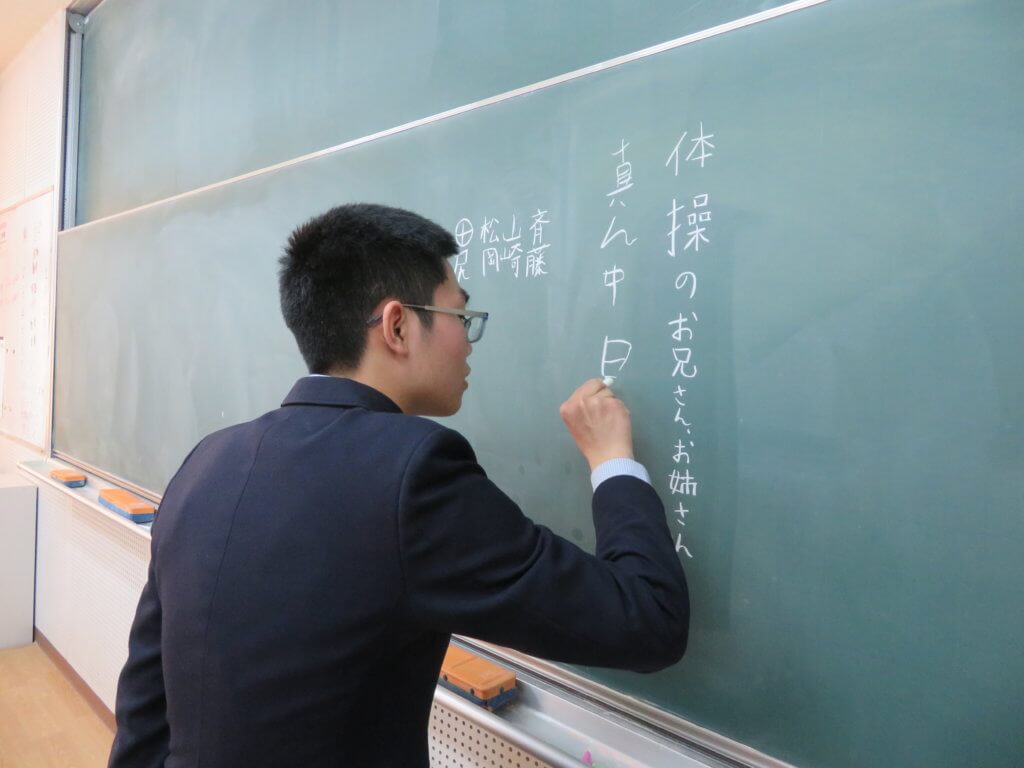 体操のお兄さん、お姉さん
真ん中
斉藤
山崎
松岡